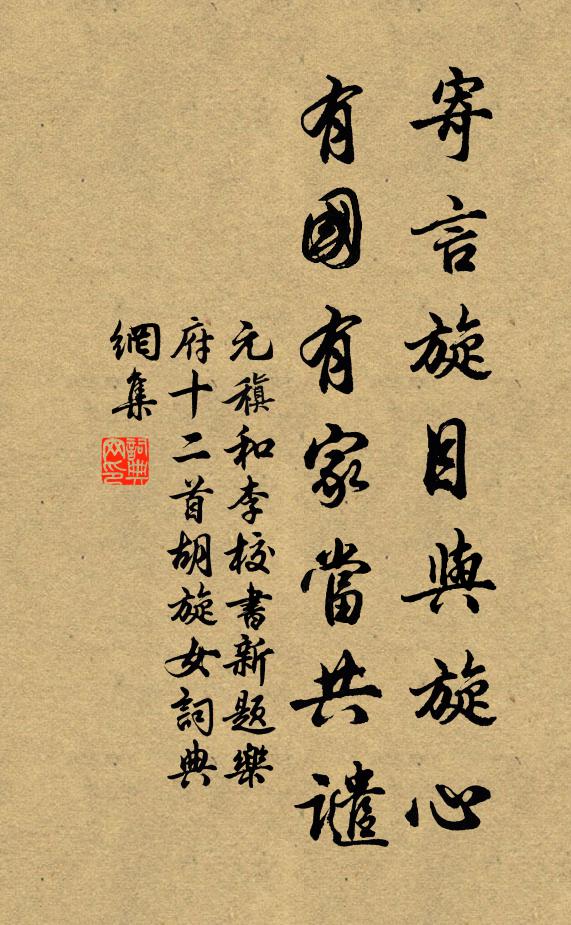 寄言旋目與旋心
有國有家當共譴
元稹和李校書新題樂
府十二首胡旋女詞典
網集
詞典
网印